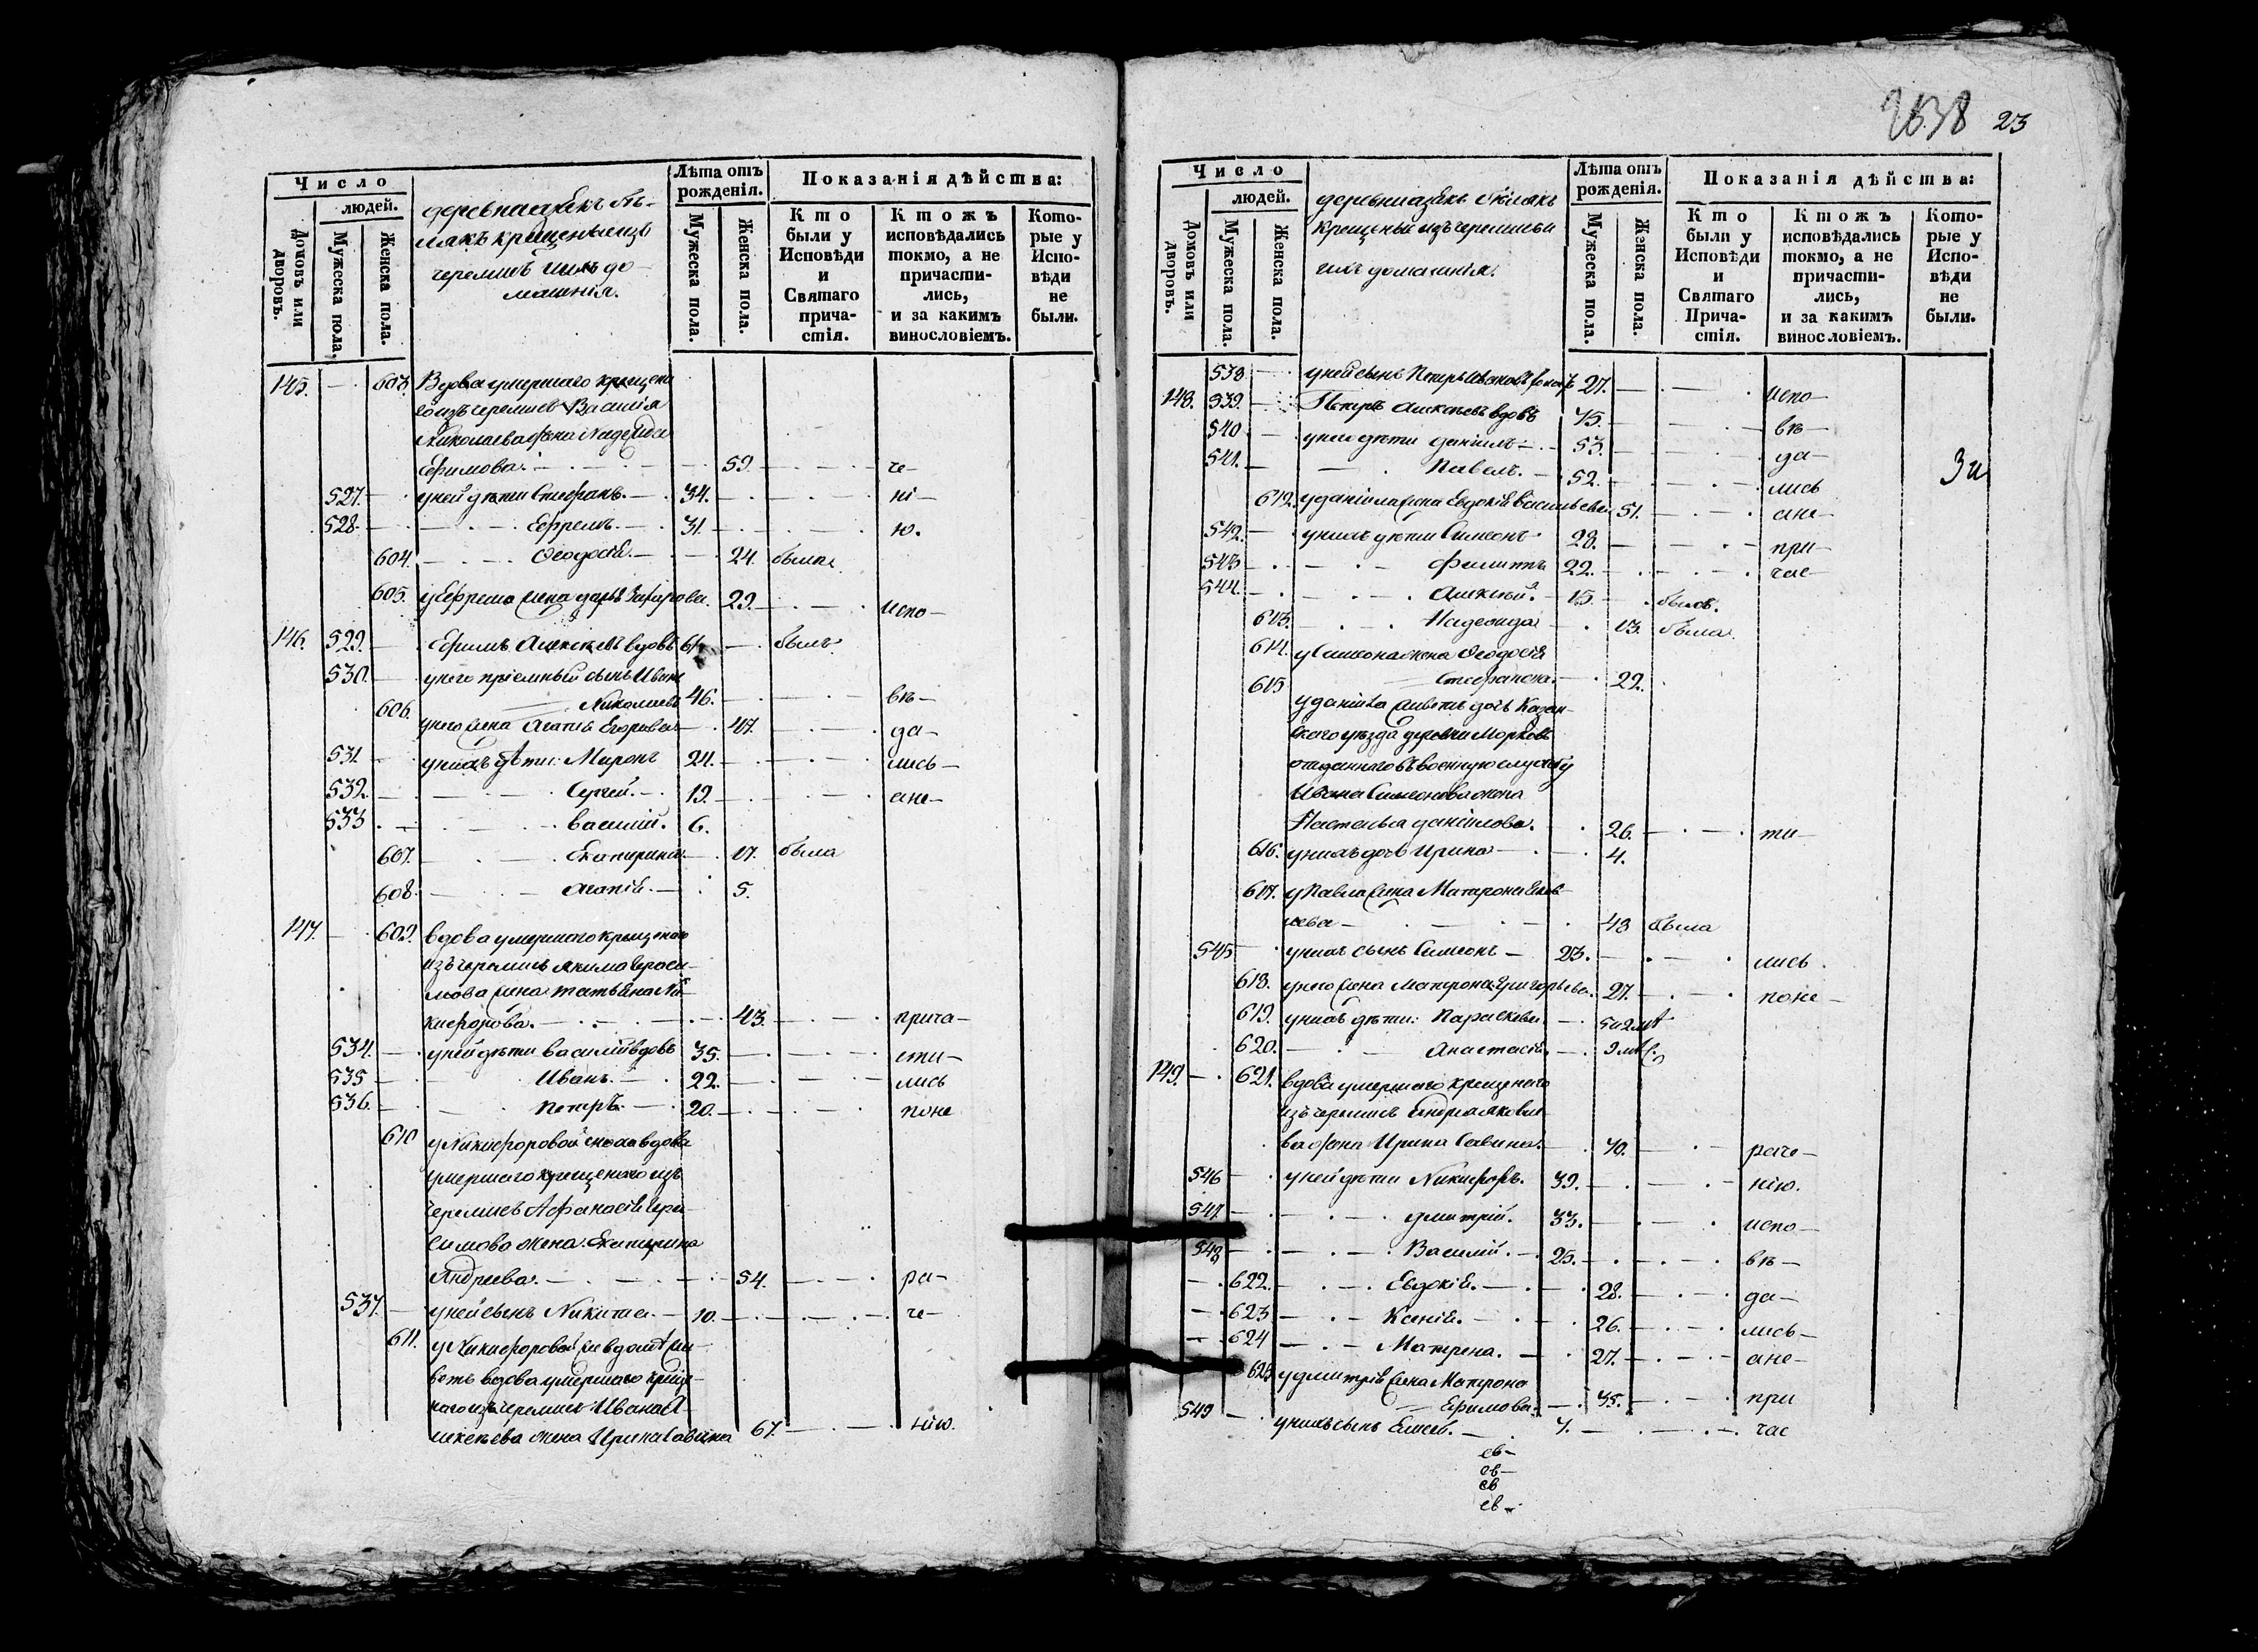 Число
людей.
Домовъ или дворовъ.
Мужеска пола.
Женска пола.
черемисъ и ихъ до-
машнія.
Лѣта отъ
рожденія.
Мужеска пола.
Женска пола.
Показанія дѣйства:
Кто
были у
Исповѣди
и
Святаго
прича-
стія.
Ктожъ
исповѣдались
токмо, а не
причасти-
лись,
и за какимъ
винословіемъ.
Кото-
рые у
Испо-
вѣди
не
были.
145. 603. Вдова умершаго крещена
го изъ черемисъ Василія
Николаева жена Надежда
Ефимова. 59. че-
527. у ней дѣти Стефанъ. 34. ні-
528. Ефремъ. 31. ю.
604. Ѳеодосія. 24. была.
605. у Ефрема жена Дарья Захарова. 29. испо-
146. 529. Ефимъ Алексѣевъ вдовъ былъ.
530. у него пріемный сынъ Иванъ
Николаевъ 46. вѣ-
606. у него жена Агапія Егорова 47. да-
531. у нихъ дѣти: Миронъ 24. лись-
532. Сергей. 19. ане-
533. Василій. 6.
607. Екатерина 17. была
608. Агапія. 5.
147. 609. вдова умершаго крещенаго
изъ черемисъ Акима Гераси-
мова жена Татьяна Ни-
кифорова. 43. прича-
534. у ней дѣти Василій вдовъ 35. сти-
535 Иванъ. 22. лись
536. Петръ. 20. поне
610 у Никифоровой сноха вдова
умершаго крещенаго изъ
черемисъ Афанасія Гера-
симова жена Екатерина
Андреева. 54. ра-
537. у ней сынъ Никита 10. че-
611. у Никифоровой же въ домѣ жи-
ветъ вдова умершаго креще-
наго изъ черемисъ Ивана А-
лексѣева жена Ирина Савина 67. нію.
2638 23
Число
людей.
Домовъ или дворовъ.
Мужеска пола.
Женска пола.
крещеныи изъ черемисъ и
ихъ домашнія.
Лѣта отъ
рожденія.
Мужеска пола.
Женска пола.
Показанія дѣйства:
Кто
были у
Исповѣди
и
Святаго
Прича-
стія.
Ктожъ
исповѣдались
токмо, а не
причасти-
лись,
и за какимъ
винословіемъ.
Кото-
рые у
Испо-
вѣди
не
были.
538 у ней сынъ Петръ Ивановъ 27. испо-
148. 539. Петръ Алексѣевъ вдовъ 75. вѣ-
540 у него дѣти Даніилъ 53. да-
541. Павелъ. 52. лись
612. у Даніила жена Евдокія Васильева 51. ане-
542. у нихъ дѣти Симеонъ 28. при-
543 Филиппъ 22. час-
544. Алексѣй. 15. былъ.
613. Надежда 13. была.
614. у Симеона жена Ѳеодосія
Стефанова. 22.
615 у Даніила живетъ дочь Казан-
скаго уѣзда деревни Морковъ
отданнаго въ военную службу
Ивана Симеонова жена
Наталья Даніилова. 26. ти-
616. у нихъ дочь Ирина 4.
617. у Павла жена Матрона
48 была
545 у нихъ сынъ Симеонъ 23. лись
618. у него жена Матрона Григорьева. 27. поне-
619. у нихъ дѣти: Параскева
620. Анастасія
149. 621. вдова умершаго крещенаго
изъ черемисъ
жена Ирина Савина. 70. раче-
546 у ней дѣти Никифоръ. 39. нію.
547 Дмитрій. 33. испо-
548 Василій. 25. вѣ-
622. Евдокія. 28. да-
623 Ксенія. 26. лись-
624 Матрена. 27. ане-
625 у Дмитрія жена Матрона
Ефимова. 35. при
549 у нихъ сынъ Елисей. 7. час